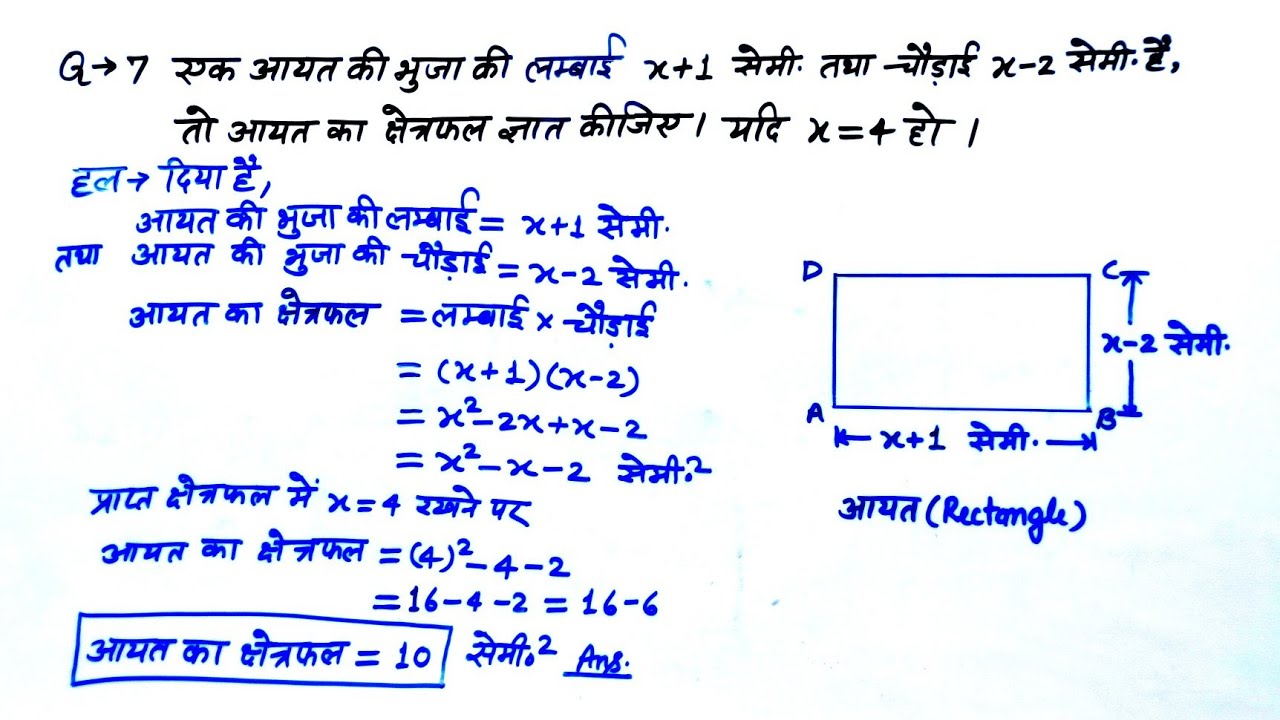 Q→7 एक आयत की भुजा की लम्बाई x+1 सेमी. तथा चौड़ाई x-2 सेमी. है,
तो आयत का क्षेत्रफल ज्ञात कीजिए। यदि x=4 हो ।
हल→ दिया है,
आयत की भुजा की लम्बाई = x+1 सेमी.
तथा आयत की भुजा की चौड़ाई = x-2 सेमी.
आयत का क्षेत्रफल = लम्बाई × चौड़ाई
= (x+1)(x-2)
= x²-2x+x-2
= x²-x-2 सेमी.²
प्राप्त क्षेत्रफल में x=4 रखने पर
आयत का क्षेत्रफल = (4)²-4-2
= 16-4-2 = 16-6
आयत का क्षेत्रफल = 10 सेमी.² Ans.
D C
x-2 सेमी.
A B
x+1 सेमी.
आयत (Rectangle)